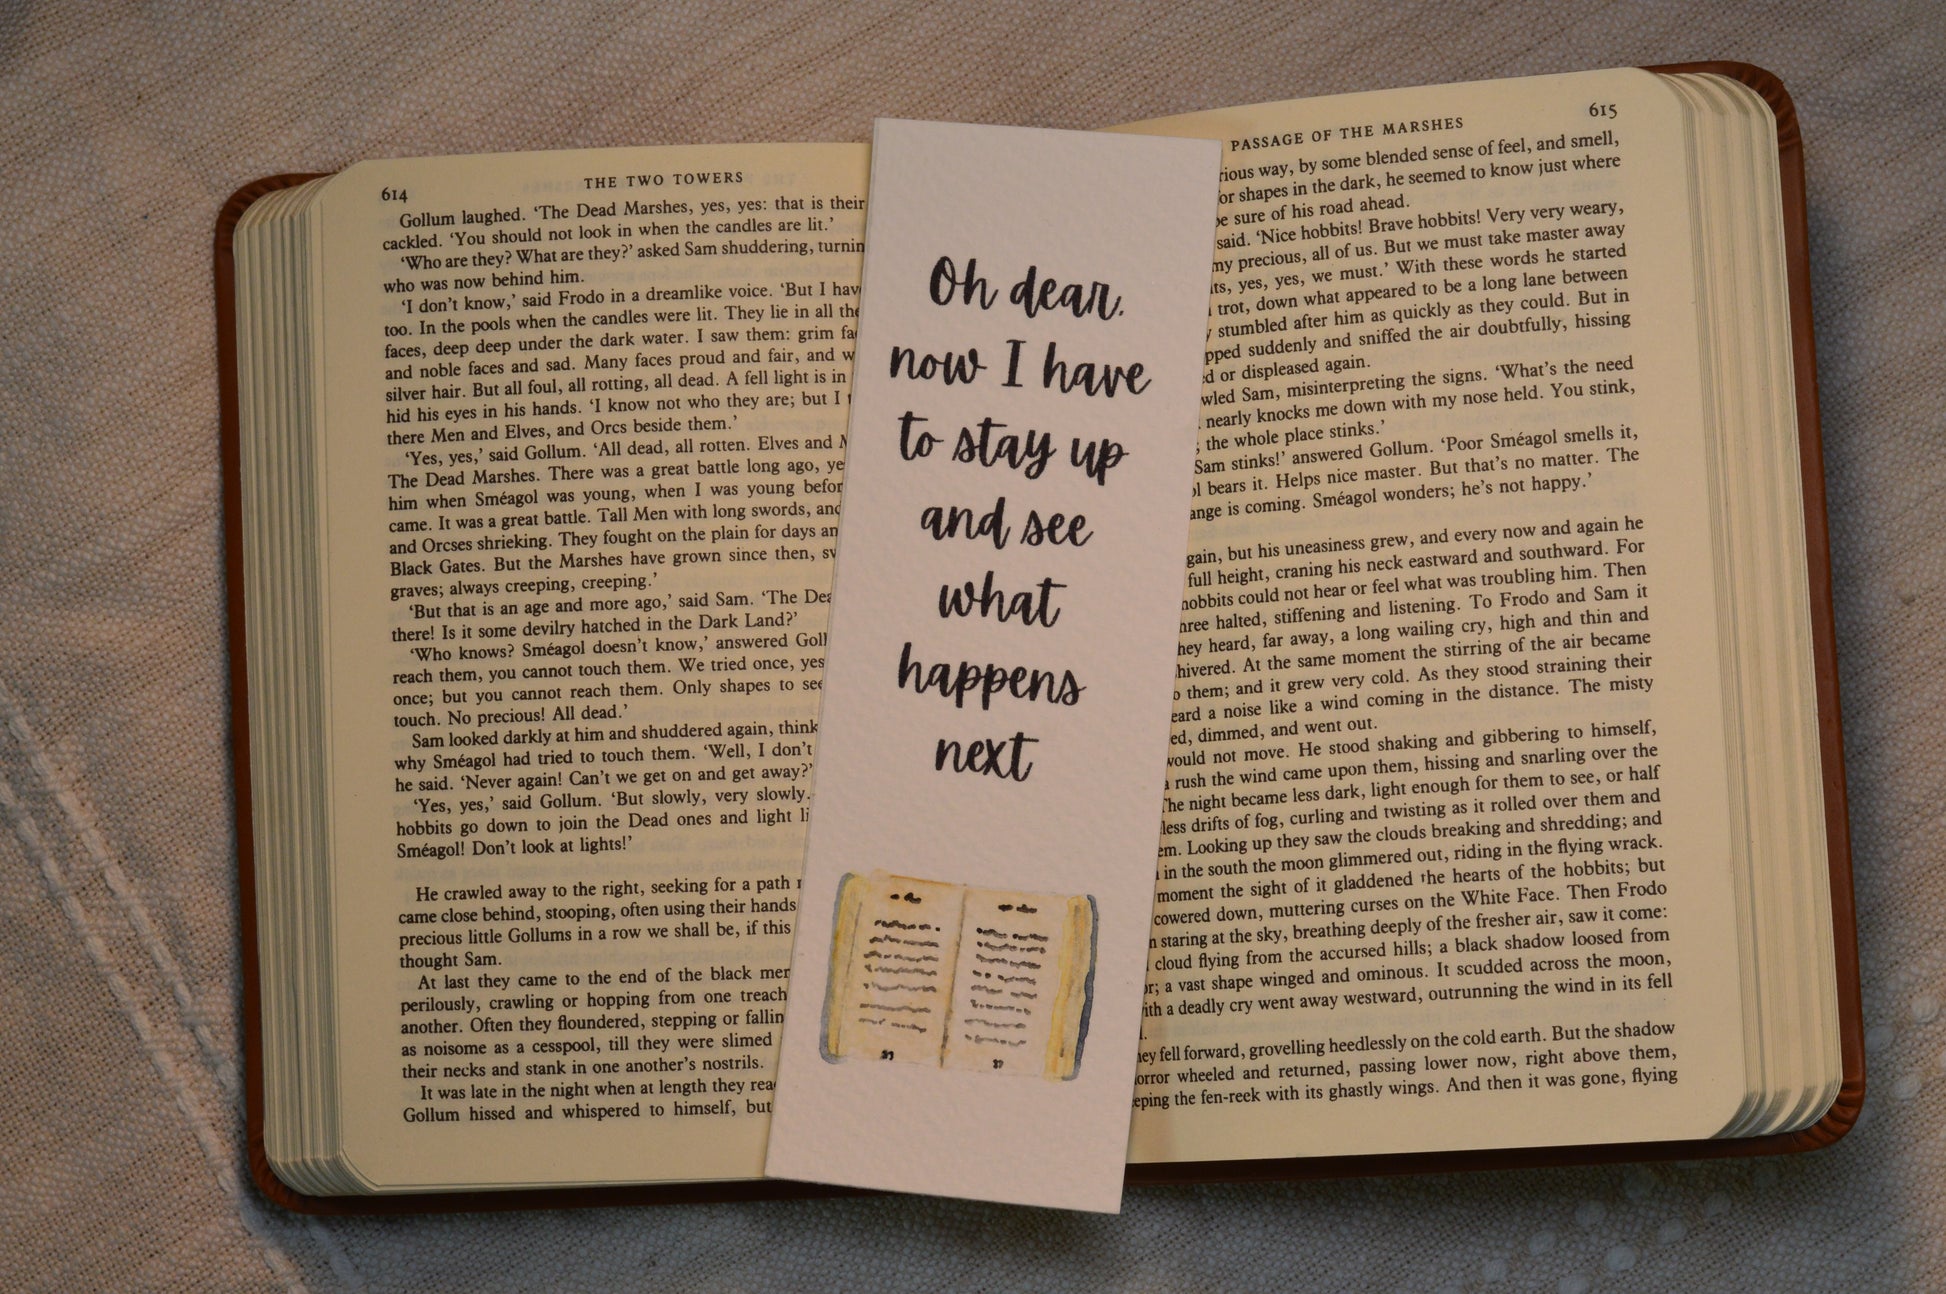 614
THE TWO TOWERS
Gollum laughed. ‘The Dead Marshes, yes, yes: that is their
cackled. ‘You should not look in when the candles are lit.’
‘Who are they? What are they?’ asked Sam shuddering,
who was now behind him.
‘I don’t know,’ said Frodo in a dreamlike voice. ‘But I
too. In the pools when the candles were lit. They lie in all
faces, deep deep under the dark water. I saw them: grim
and noble faces and sad. Many faces proud and fair, and
silver hair. But all foul, all rotting, all dead. A fell light is in
hid his eyes in his hands. ‘I know not who they are; but I
there Men and Elves, and Orcs beside them.’
‘Yes, yes,’ said Gollum. ‘All dead, all rotten. Elves and
The Dead Marshes. There was a great battle long ago,
him when Sméagol was young, when I was young
came. It was a great battle. Tall Men with long swords,
and Orcses shrieking. They fought on the plain for days
Black Gates. But the Marshes have grown since then,
graves; always creeping, creeping.’
‘But that is an age and more ago,’ said Sam. ‘The
there! Is it some devilry hatched in the Dark Land?’
‘Who knows? Sméagol doesn’t know,’ answered
reach them, you cannot touch them. We tried once,
once; but you cannot reach them. Only shapes to
touch. No precious! All dead.’
Sam looked darkly at him and shuddered again,
why Sméagol had tried to touch them. ‘Well, I don’t
he said. ‘Never again! Can’t we get on and get away?’
‘Yes, yes,’ said Gollum. ‘But slowly, very slowly.
hobbits go down to join the Dead ones and light
Sméagol! Don’t look at lights!’
He crawled away to the right, seeking for a path
came close behind, stooping, often using their hands
precious little Gollums in a row we shall be, if this
thought Sam.
At last they came to the end of the black
perilously, crawling or hopping from one
another. Often they floundered, stepping or
as noisome as a cesspool, till they were slimed
their necks and stank in one another’s nostrils.
It was late in the night when at length they
Gollum hissed and whispered to himself, but
Oh dear,
now I have
to stay up
and see
what
happens
next
PASSAGE OF THE MARSHES
615
way, by some blended sense of feel, and smell,
for shapes in the dark, he seemed to know just where
be sure of his road ahead.
said. ‘Nice hobbits! Brave hobbits! Very very weary,
my precious, all of us. But we must take master away
yes, yes, we must.’ With these words he started
trot, down what appeared to be a long lane between
stumbled after him as quickly as they could. But in
suddenly and sniffed the air doubtfully, hissing
or displeased again.
Sam, misinterpreting the signs. ‘What’s the need
nearly knocks me down with my nose held. You stink,
the whole place stinks.’
Sam stinks!’ answered Gollum. ‘Poor Sméagol smells it,
bears it. Helps nice master. But that’s no matter. The
is coming. Sméagol wonders; he’s not happy.’
but his uneasiness grew, and every now and again he
full height, craning his neck eastward and southward. For
hobbits could not hear or feel what was troubling him. Then
halted, stiffening and listening. To Frodo and Sam it
they heard, far away, a long wailing cry, high and thin and
At the same moment the stirring of the air became
them; and it grew very cold. As they stood straining their
a noise like a wind coming in the distance. The misty
dimmed, and went out.
would not move. He stood shaking and gibbering to himself,
a rush the wind came upon them, hissing and snarling over the
The night became less dark, light enough for them to see, or half
drifts of fog, curling and twisting as it rolled over them and
Looking up they saw the clouds breaking and shredding; and
in the south the moon glimmered out, riding in the flying wrack.
moment the sight of it gladdened the hearts of the hobbits; but
cowered down, muttering curses on the White Face. Then Frodo
staring at the sky, breathing deeply of the fresher air, saw it come:
cloud flying from the accursed hills; a black shadow loosed from
a vast shape winged and ominous. It scudded across the moon,
with a deadly cry went away westward, outrunning the wind in its fell
they fell forward, grovelling heedlessly on the cold earth. But the shadow
horror wheeled and returned, passing lower now, right above them,
the fen-reek with its ghastly wings. And then it was gone, flying